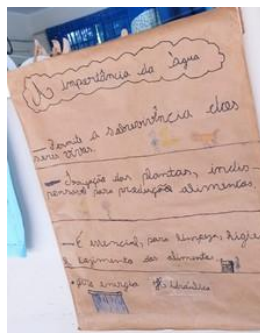 A importância da água
— Permite a sobrevivência dos
seres vivos.
— Irrigação das plantas, indis-
pensável para produção alimentos.
— É essencial, para limpeza, higie
e cozimento dos alimentos.
• gera energia